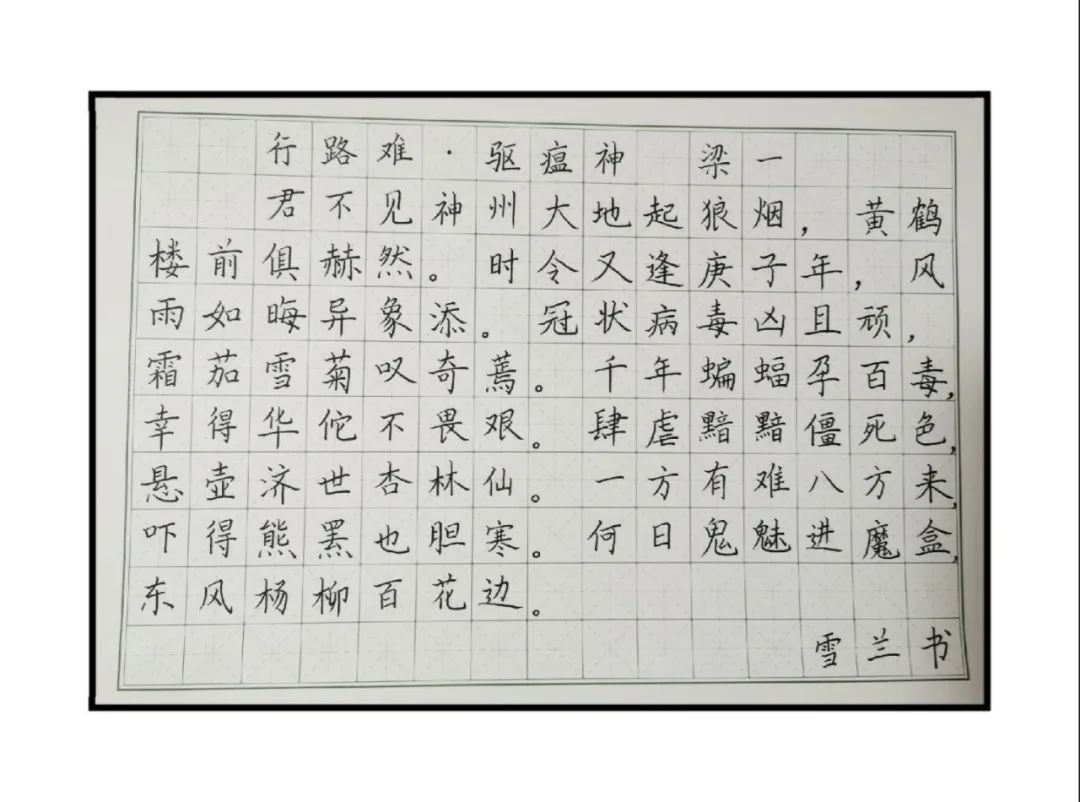 行路难·驱瘟神 梁一
君不见神州大地起狼烟，黄鹤
楼前俱赫然。时令又逢庚子年，风
雨如晦异象添。冠状病毒凶且顽，
霜茄雪菊叹奇蔫。千年蝙蝠孕百毒，
幸得华佗不畏艰。肆虐黯黯僵死色，
悬壶济世杏林仙。一方有难八方来，
吓得熊罴也胆寒。何日鬼魅进魔盒，
东风杨柳百花边。
雪兰书